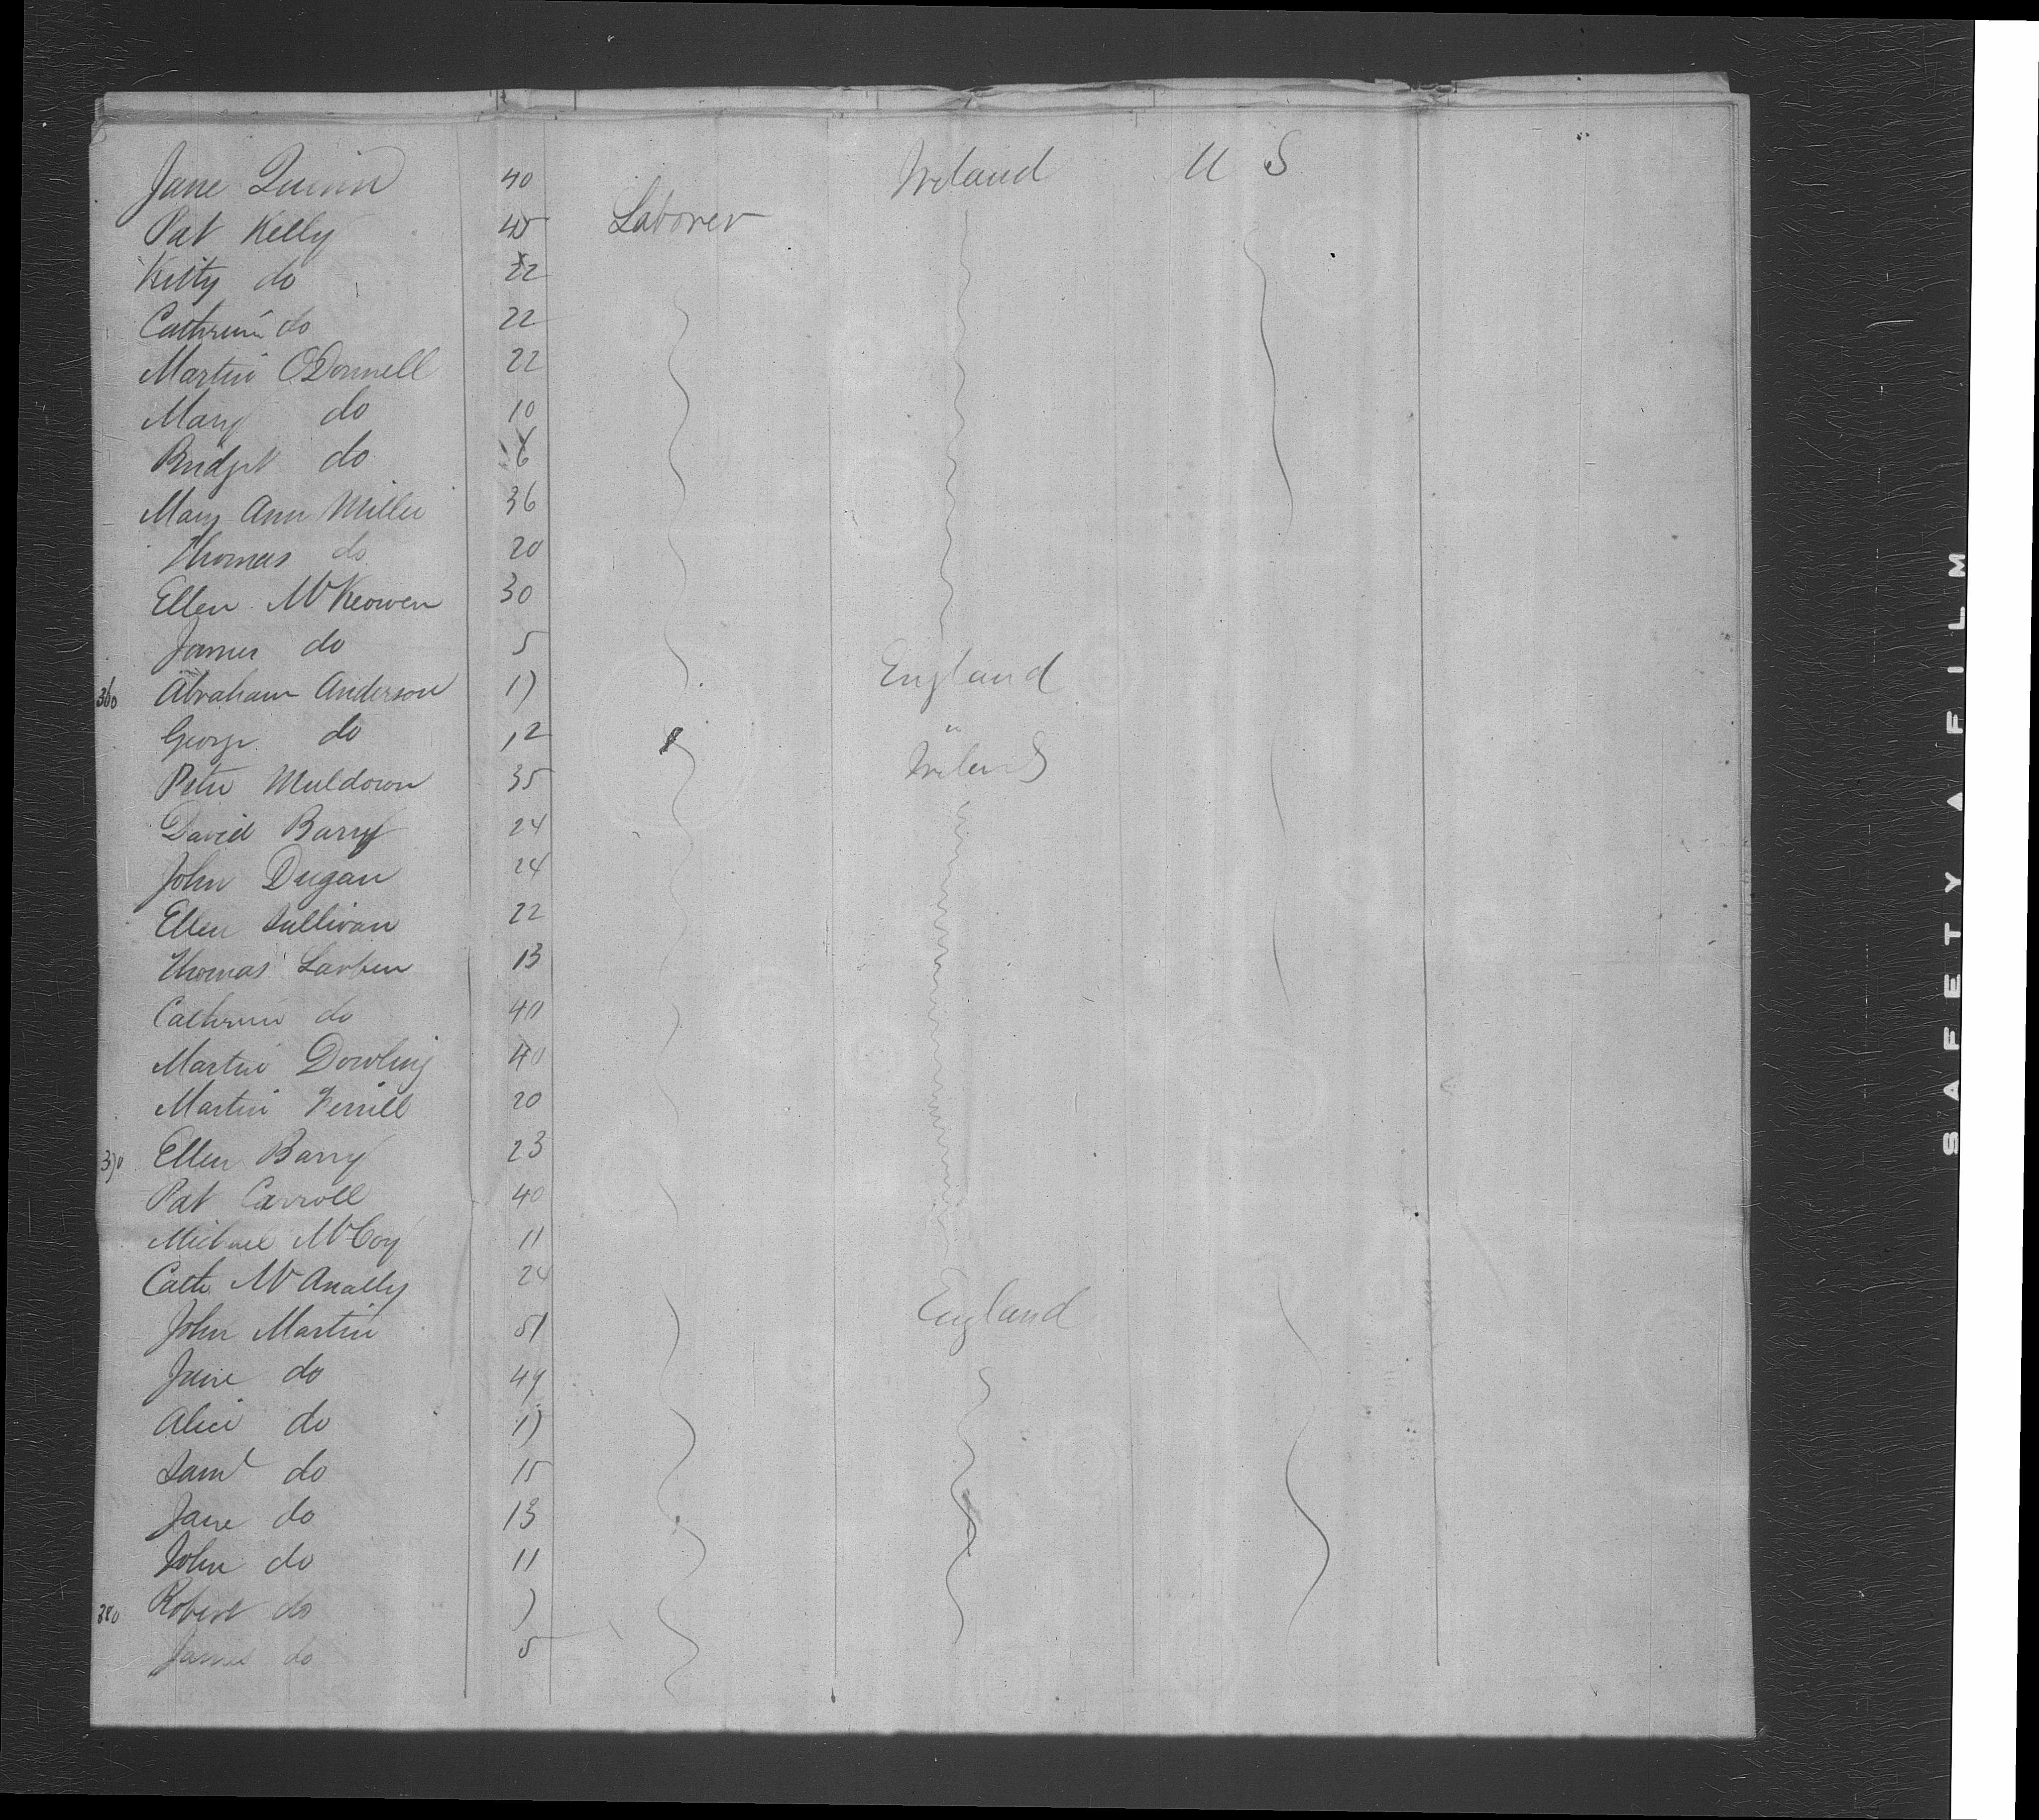 Jane Quinn 40 Ireland U S
Pat Kelly 45 Laborer
Kitty do 22
Cathrine do 22
Martin O'Donnell 22
Mary do 10
Bridget do 6
Mary Ann Miller 36
Thomas do 20
Ellen McKeowen 30
James do 5
360 Abraham Anderson 17 England
George do 12 "
Peter Muldown 35 Ireland
David Barry 24
John Dugan 24
Ellen Sullivan 22
Thomas 13
Cathrine do 40
Martin Dowling 40
Martin 20
370 Ellen Barry 23
Pat Carroll 40
Michael McCoy 11
Cath McAnally 24
John Martin 51 England
Jane do 49
Alice do 17
Saml do 15
Jane do 13
John do 11
380 Robert do 7
James do 5
SAFETY FILM